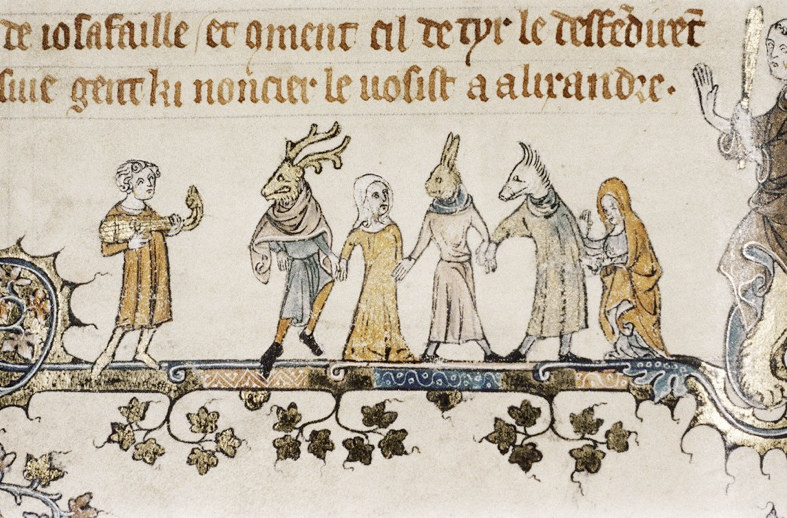 de iosafaille / et gment cil de tyr le deffēdirēt
siue gent ki nōcier le uosist a alixandre.